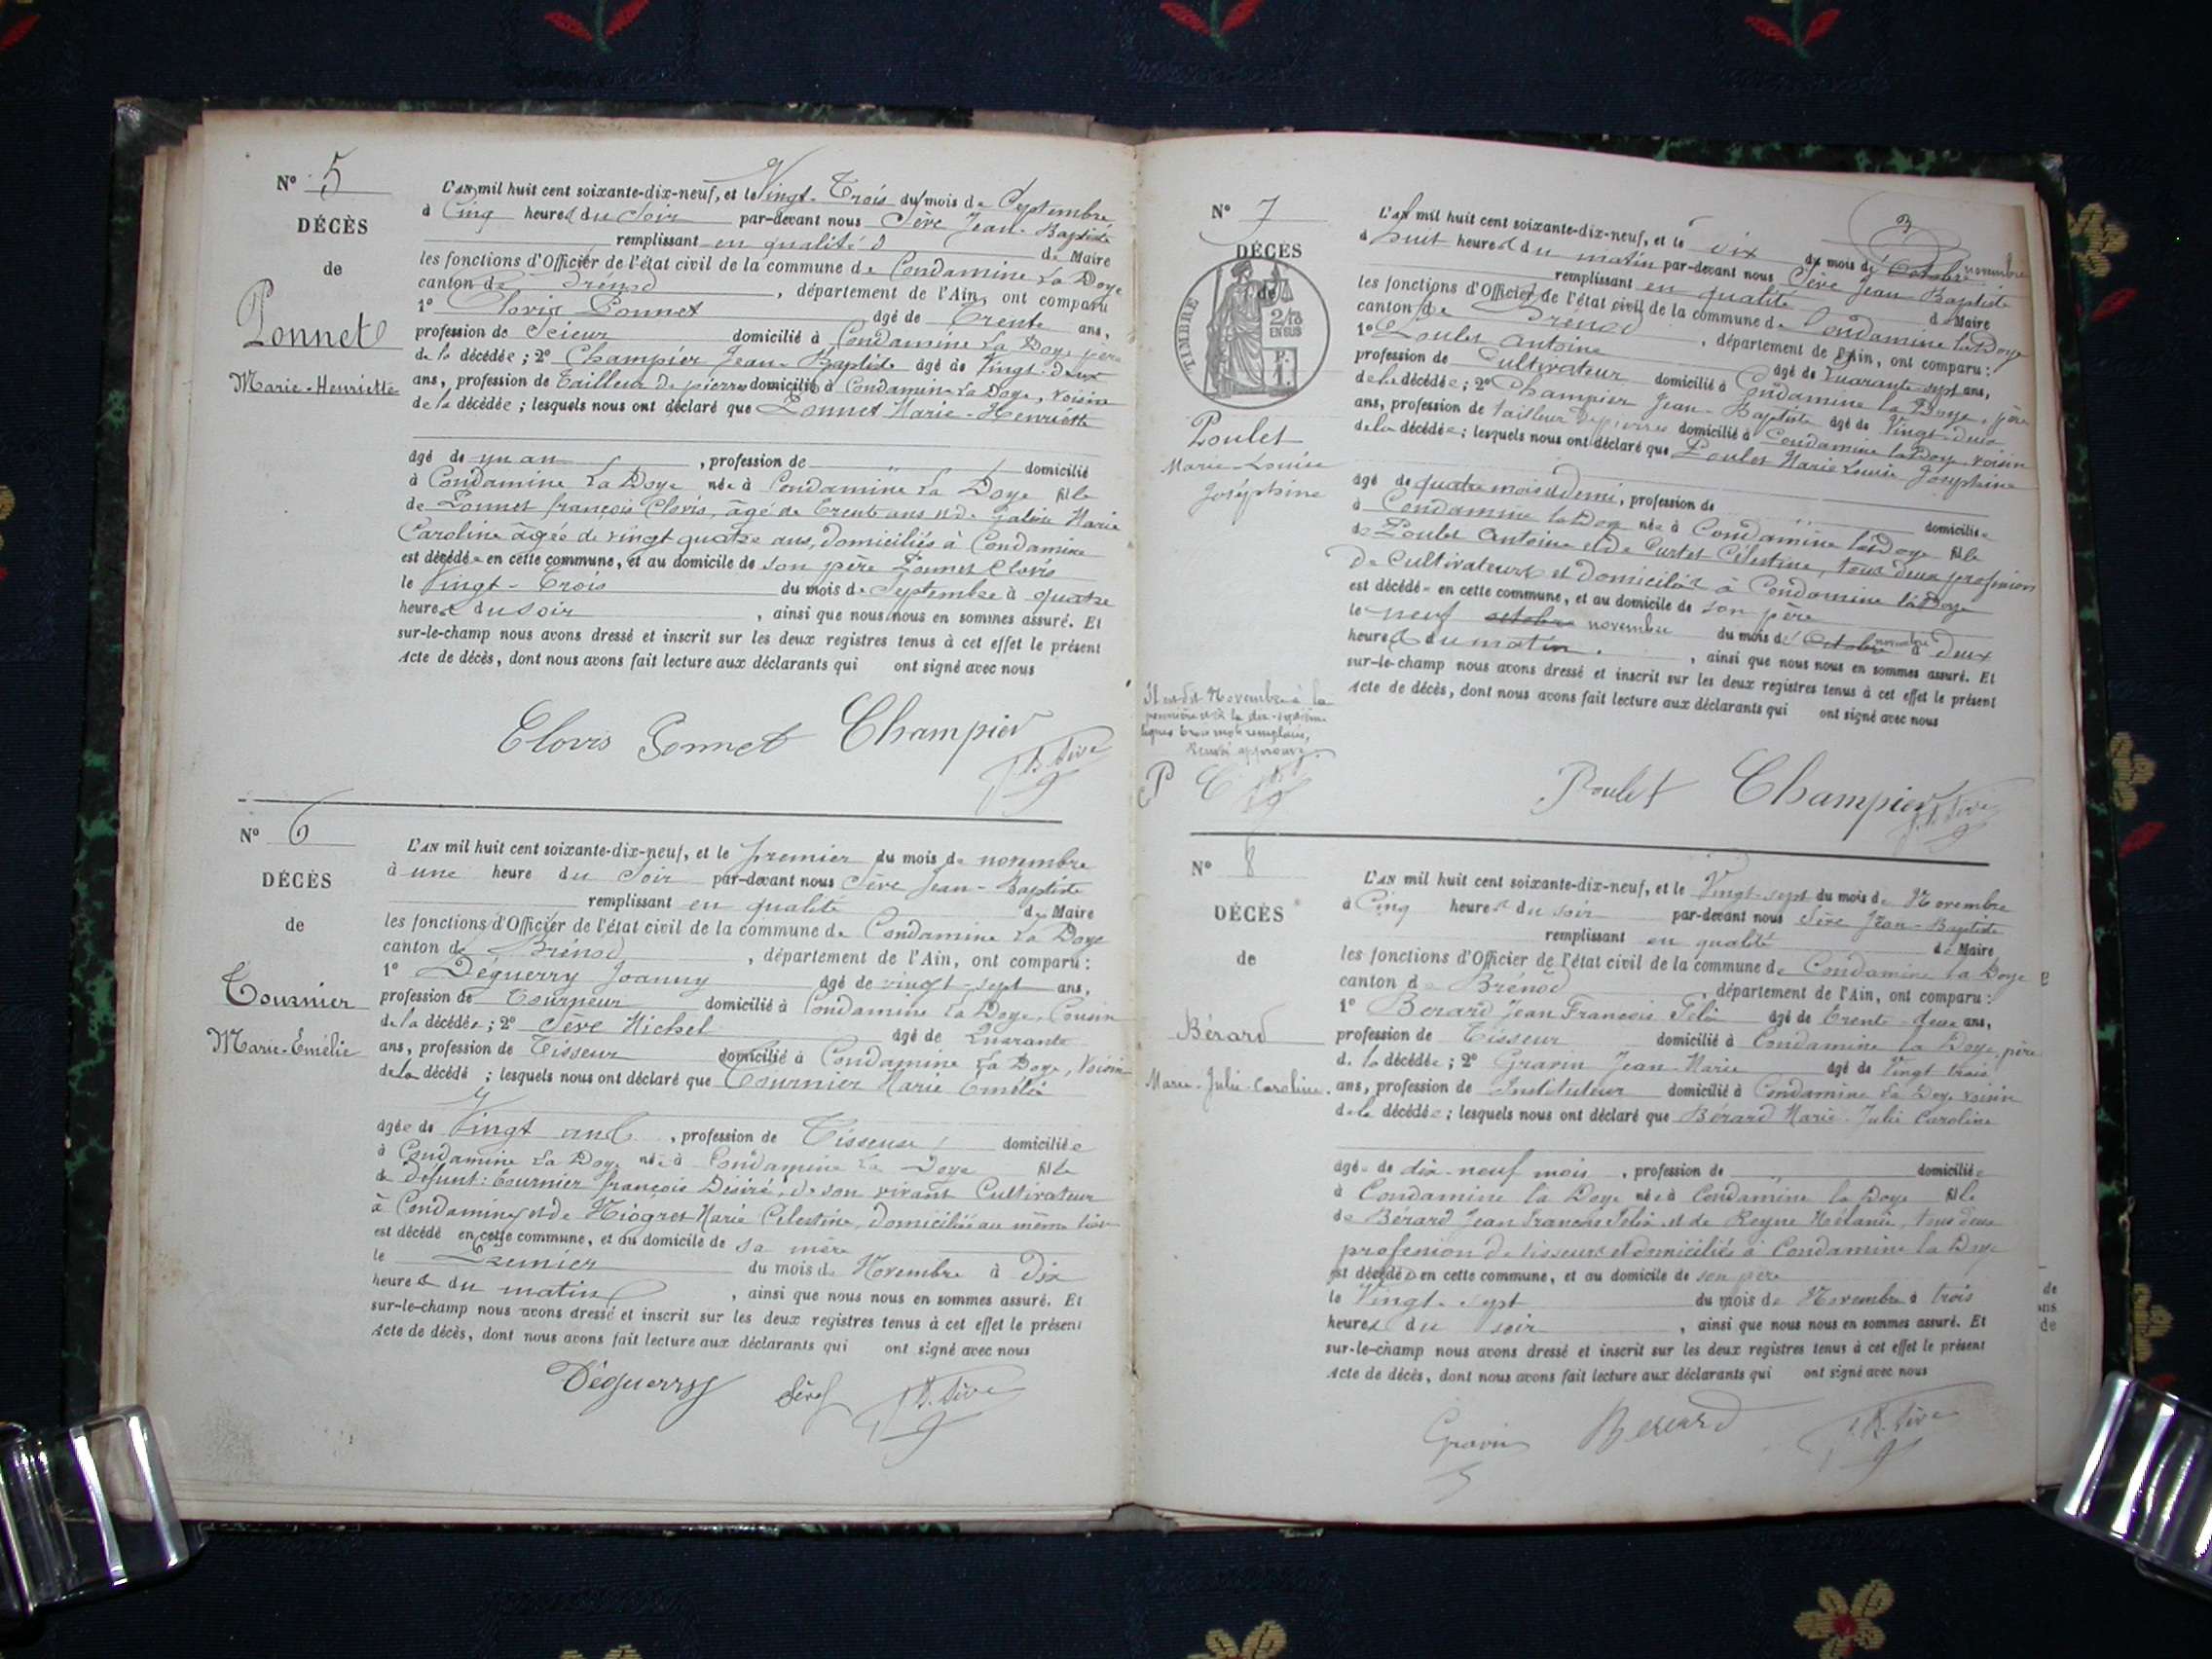 Nº 5
DÉCÈS
de
Ponnet
Marie-Henriette
L'AN mil huit cent soixante-dix-neuf, et le Vingt-Trois du mois de Septembre
à Cinq heures du Soir par-devant nous Sève Jean-Baptiste
remplissant en qualité de Maire
les fonctions d'Officier de l'état civil de la commune de Condamine La Doye
canton de Brénod, département de l'Ain, ont comparu
1º Clovis Ponnet âgé de Trente ans,
profession de Scieur domicilié à Condamine La Doye, père
de la décédée; 2º Champier Jean-Baptiste âgé de Vingt-deux
ans, profession de Tailleur de pierres domicilié à Condamine La Doye, voisin
de la décédée; lesquels nous ont déclaré que Ponnet Marie-Henriette
âgé de un an, profession de domicilié
à Condamine La Doye née à Condamine La Doye fille
de Ponnet françois Clovis, âgé de Trente ans et de Marie
Caroline âgée de vingt quatre ans, domiciliés à Condamine
est décédée en cette commune, et au domicile de son père Ponnet Clovis
le Vingt-Trois du mois de Septembre à quatre
heures du soir, ainsi que nous nous en sommes assuré. Et
sur-le-champ nous avons dressé et inscrit sur les deux registres tenus à cet effet le présent
Acte de décès, dont nous avons fait lecture aux déclarants qui ont signé avec nous
Clovis Ponnet Champier
J.B. Sève
Nº 6
DÉCÈS
de
Tournier
Marie-Emélie
L'AN mil huit cent soixante-dix-neuf, et le premier du mois de novembre
à une heure du Soir par-devant nous Sève Jean-Baptiste
remplissant en qualité de Maire
les fonctions d'Officier de l'état civil de la commune de Condamine La Doye
canton de Brénod, département de l'Ain, ont comparu:
1º Déguerry Joanny âgé de vingt-sept ans,
profession de Tourneur domicilié à Condamine La Doye, Cousin
de la décédée; 2º Sève Michel âgé de Quarante
ans, profession de Tisseur domicilié à Condamine La Doye, Voisin
de la décédé; lesquels nous ont déclaré que Tournier Marie Emélie
âgée de Vingt ans, profession de Tisseuse domiciliée
à Condamine La Doye née à Condamine La Doye fille
de défunt: Tournier françois Désiré, de son vivant Cultivateur
à Condamine, et de Miogret Marie Célestine, domiciliée au même lieu
est décédé en cette commune, et au domicile de sa mère
le Premier du mois de Novembre à Dix
heures du matin, ainsi que nous nous en sommes assuré. Et
sur-le-champ nous avons dressé et inscrit sur les deux registres tenus à cet effet le présent
Acte de décès, dont nous avons fait lecture aux déclarants qui ont signé avec nous
Déguerry Sève J.B. Sève
3
Nº 7
DÉCÈS
de
TIMBRE
2/10
EN SUS
P.
1.
Poulet
Marie-Louise
Joséphine
L'AN mil huit cent soixante-dix-neuf, et le dix du mois de Octobre novembre
à huit heures du matin par-devant nous Sève Jean-Baptiste
remplissant en qualité de Maire
les fonctions d'Officier de l'état civil de la commune de Condamine la Doye
canton de Brénod, département de l'Ain, ont comparu:
1º Poulet Antoine âgé de Quarante-sept ans,
profession de Cultivateur domicilié à Condamine la Doye, père
de la décédée; 2º Champier Jean-Baptiste âgé de Vingt-deux
ans, profession de tailleur de pierres domicilié à Condamine la Doye, voisin
de la décédée; lesquels nous ont déclaré que Poulet Marie Louise Joséphine
âgé de quatre mois et demi, profession de domiciliée
à Condamine la Doye née à Condamine la Doye fille
de Poulet Antoine et de Curtet Célestine, tous deux profession
de Cultivateurs et domiciliés à Condamine la Doye
est décédée en cette commune, et au domicile de son père
le neuf octobre novembre du mois de Octobre novembre à deux
heures du matin, ainsi que nous nous en sommes assuré. Et
sur-le-champ nous avons dressé et inscrit sur les deux registres tenus à cet effet le présent
Acte de décès, dont nous avons fait lecture aux déclarants qui ont signé avec nous
Il est dit Novembre à la
première et à la dix-septième
lignes trois mots remplacés,
Renvoi approuvé.
P C
Poulet Champier J.B. Sève
Nº 8
DÉCÈS
de
Bérard
Marie-Julie-Caroline.
L'AN mil huit cent soixante-dix-neuf, et le Vingt-sept du mois de Novembre
à Cinq heures du soir par-devant nous Sève Jean-Baptiste
remplissant en qualité de Maire
les fonctions d'Officier de l'état civil de la commune de Condamine la Doye
canton de Brénod, département de l'Ain, ont comparu:
1º Berard Jean François Félix âgé de Trente-deux ans,
profession de Tisseur domicilié à Condamine la Doye, père
de la décédée; 2º Gravin Jean-Marie âgé de Vingt trois
ans, profession de Instituteur domicilié à Condamine la Doye voisin
de la décédée; lesquels nous ont déclaré que Bérard Marie-Julie Caroline
âgée de dix-neuf mois, profession de domiciliée
à Condamine la Doye née à Condamine la Doye fille
de Bérard Jean François Félix et de Reyne Mélanie, tous deux
profession de tisseurs et domiciliés à Condamine la Doye
est décédée en cette commune, et au domicile de son père
le Vingt-sept du mois de Novembre à trois
heures du soir, ainsi que nous nous en sommes assuré. Et
sur-le-champ nous avons dressé et inscrit sur les deux registres tenus à cet effet le présent
Acte de décès, dont nous avons fait lecture aux déclarants qui ont signé avec nous
Gravin Berard J.B. Sève
de
ans
de